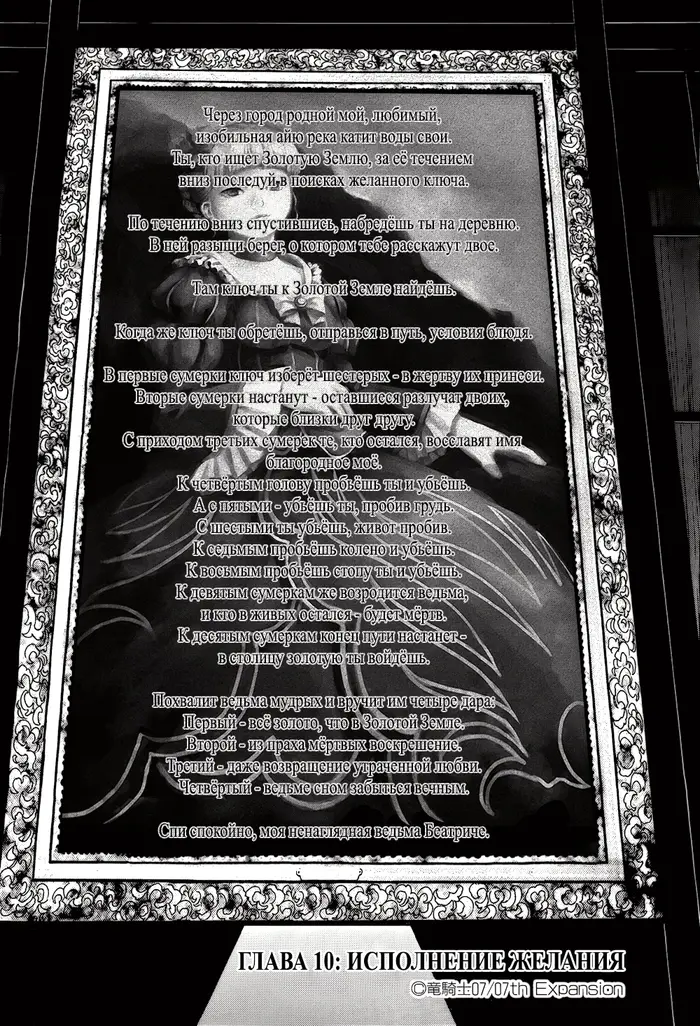 Через город родной мой, любимый,
изобильная айю река катит воды свои.
Ты, кто ищет Золотую Землю, за её течением
вниз последуй в поисках желанного ключа.
По течению вниз спустившись, набредёшь ты на деревню.
В ней разыщи берег, о котором тебе расскажут двое.
Там ключ ты к Золотой Земле найдёшь.
Когда же ключ ты обретёшь, отправься в путь, условия блюдя.
В первые сумерки ключ изберёт шестерых - в жертву их принеси.
Вторые сумерки настанут - оставшиеся разлучат двоих,
которые близки друг другу.
С приходом третьих сумерек те, кто остался, восславят имя
благородное моё.
К четвёртым голову пробьёшь ты и убьёшь.
А с пятыми - убьёшь ты, пробив грудь.
С шестыми ты убьёшь, живот пробив.
К седьмым пробьёшь колено и убьёшь.
К восьмым пробьёшь стопу ты и убьёшь.
К девятым сумеркам же возродится ведьма,
и кто в живых остался - будет мёртв.
К десятым сумеркам конец пути настанет -
в столицу золотую ты войдёшь.
Похвалит ведьма мудрых и вручит им четыре дара:
Первый - всё золото, что в Золотой Земле.
Второй - из праха мёртвых воскрешение.
Третий - даже возвращение утраченной любви.
Четвёртый - ведьме сном забыться вечным.
Спи спокойно, моя ненаглядная ведьма Беатриче.
ГЛАВА 10: ИСПОЛНЕНИЕ ЖЕЛАНИЯ
©竜騎士07/07th Expansion